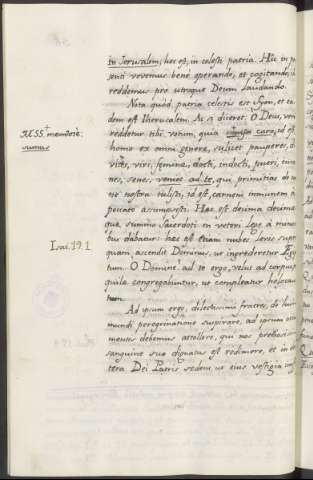 in Jerusalem; hoc est, in celesti patria. Hic in p
senti vovemus bene operando, et cogitando, i
reddemus pro utroque Deum laudando.
Nota quod patria celestis est Syon, et ea
dem est Iherusalem. Ac si diceret. O Deus, ven
reddetur tibi votum, quia omnis caro, id est
homo ex omni genere, scilicet pauperes, di
vites, viri, femine, docti, indocti, pueri, iuve
nes, senes, veniet ad te, qui primitias de
est nostra tulisti, id est, carnem immunem a
peccato assumpsisti. Haec est decima decima
que summo sacerdoti in veteri lege a mino
ribus dabatur: haec est etiam nubes levis supe
quam ascendit Dominus, ut ingrederetur Egy
tum. O Domine! ad te ergo, velud ad corpus
quila congregabuntur, ut compleatur holocau
tum.
Ad ipsum ergo, dilectissimi fratres, de huius
mundi peregrinatione suspirare, ad ipsum
mentes debemus attollere, qui nos prethioso
sanguine suo dignatus est redimere, et in
tera Dei Patris sedem, ut eius vestigia
MSS.
sumus
Isai. 19. 1